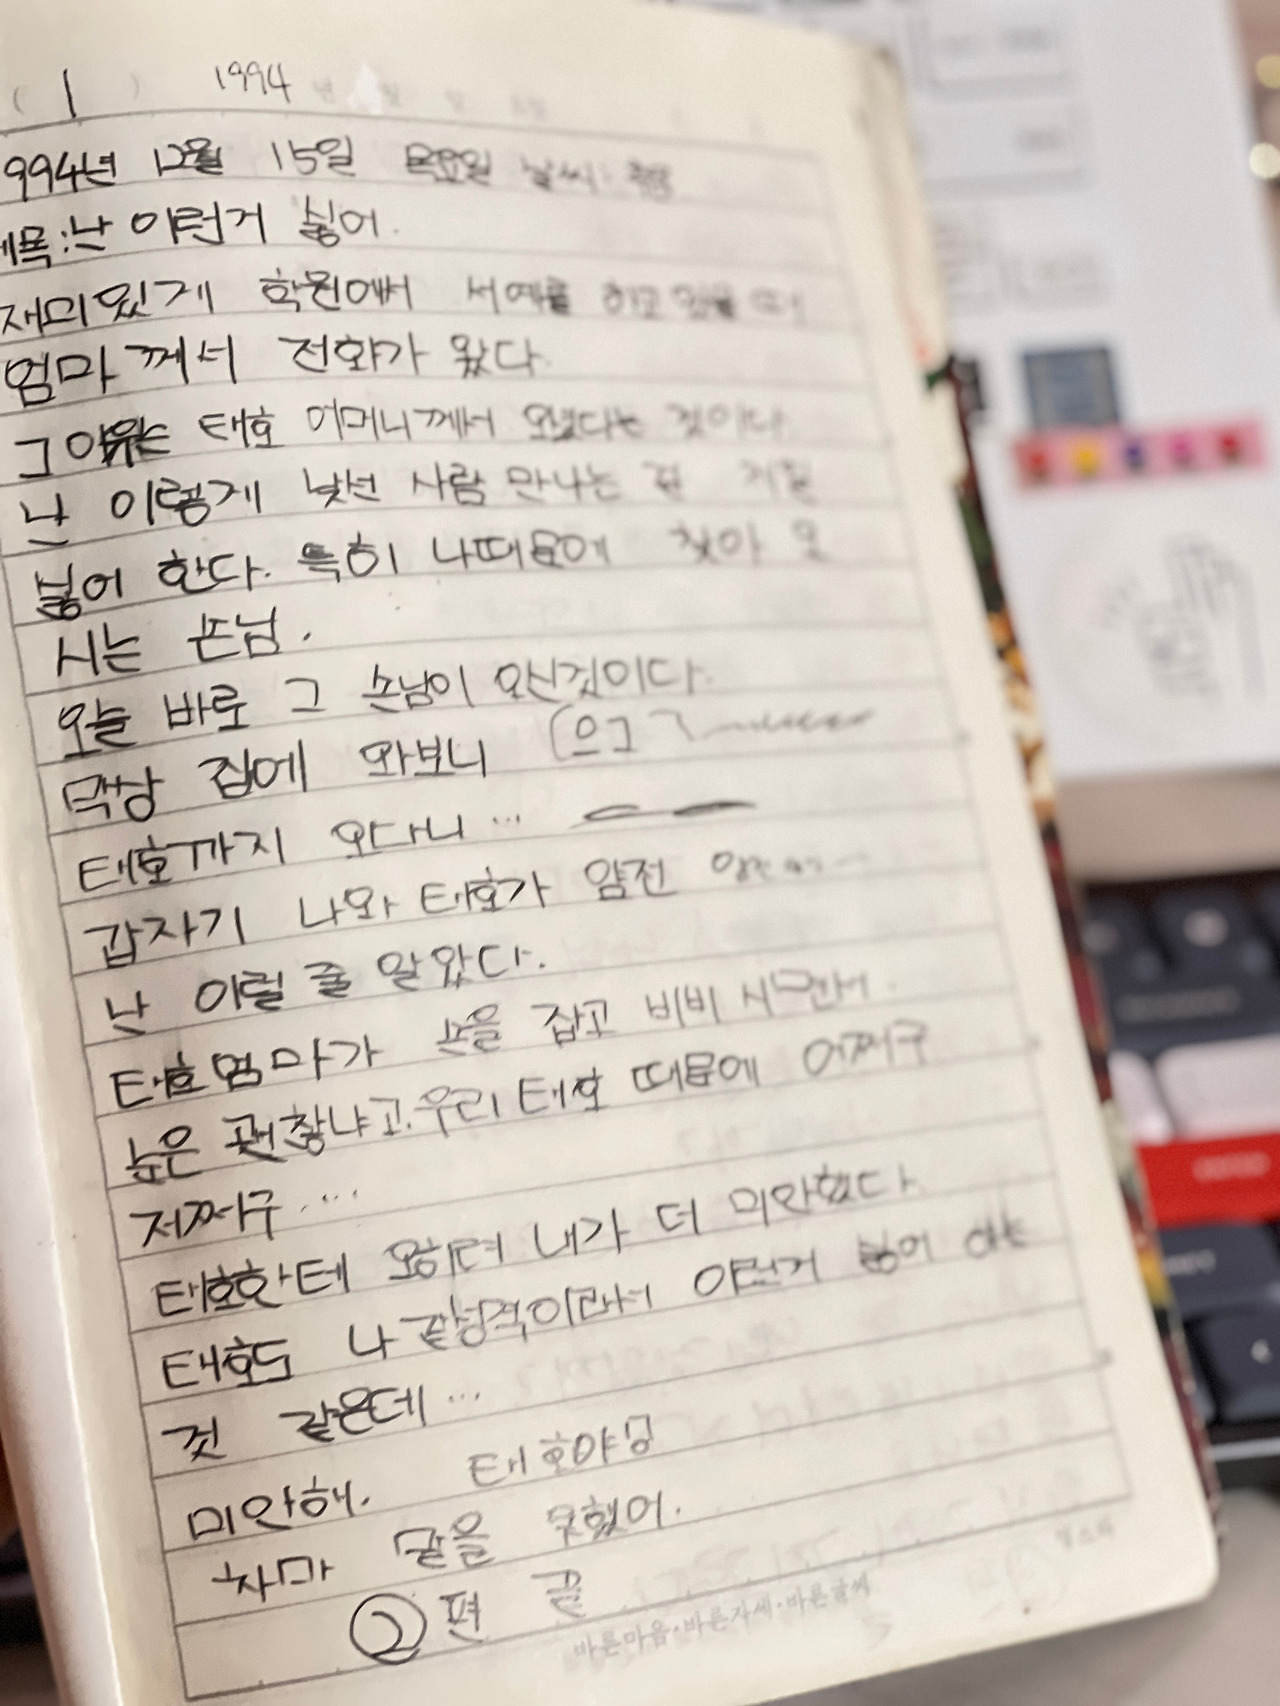 ( 1 ) 1994 년 월 일 요일
994년 12월 15일 목요일 날씨:
제목:난 이런거 싫어.
재미있게 학원에서 서예를 하고 있을 때
엄마께서 전화가 왔다.
그 이유는 태호 어머니께서 오셨다는 것이다
난 이렇게 낯선 사람 만나는 걸 제일
싫어 한다. 특히 나때문에 찾아 오
시는 손님.
오늘 바로 그 손님이 오신것이다.
막상 집에 와보니 (으그
태호까지 오다니...
갑자기 나와 태호가 얌전
난 이럴 줄 알았다.
태호엄마가 손을 잡고 비비시면서.
눈은 괜찮냐고. 우리 태호 때문에 어쩌구
저쩌구...
태호한테 오히려 내가 더 미안했다.
태호도 나 같성격이라서 이런거 싫어 하는
것 같은데...
미안해. 태호야
차마 말을 못했어.
② 편 끝
바른마음·바른자세·바른글씨